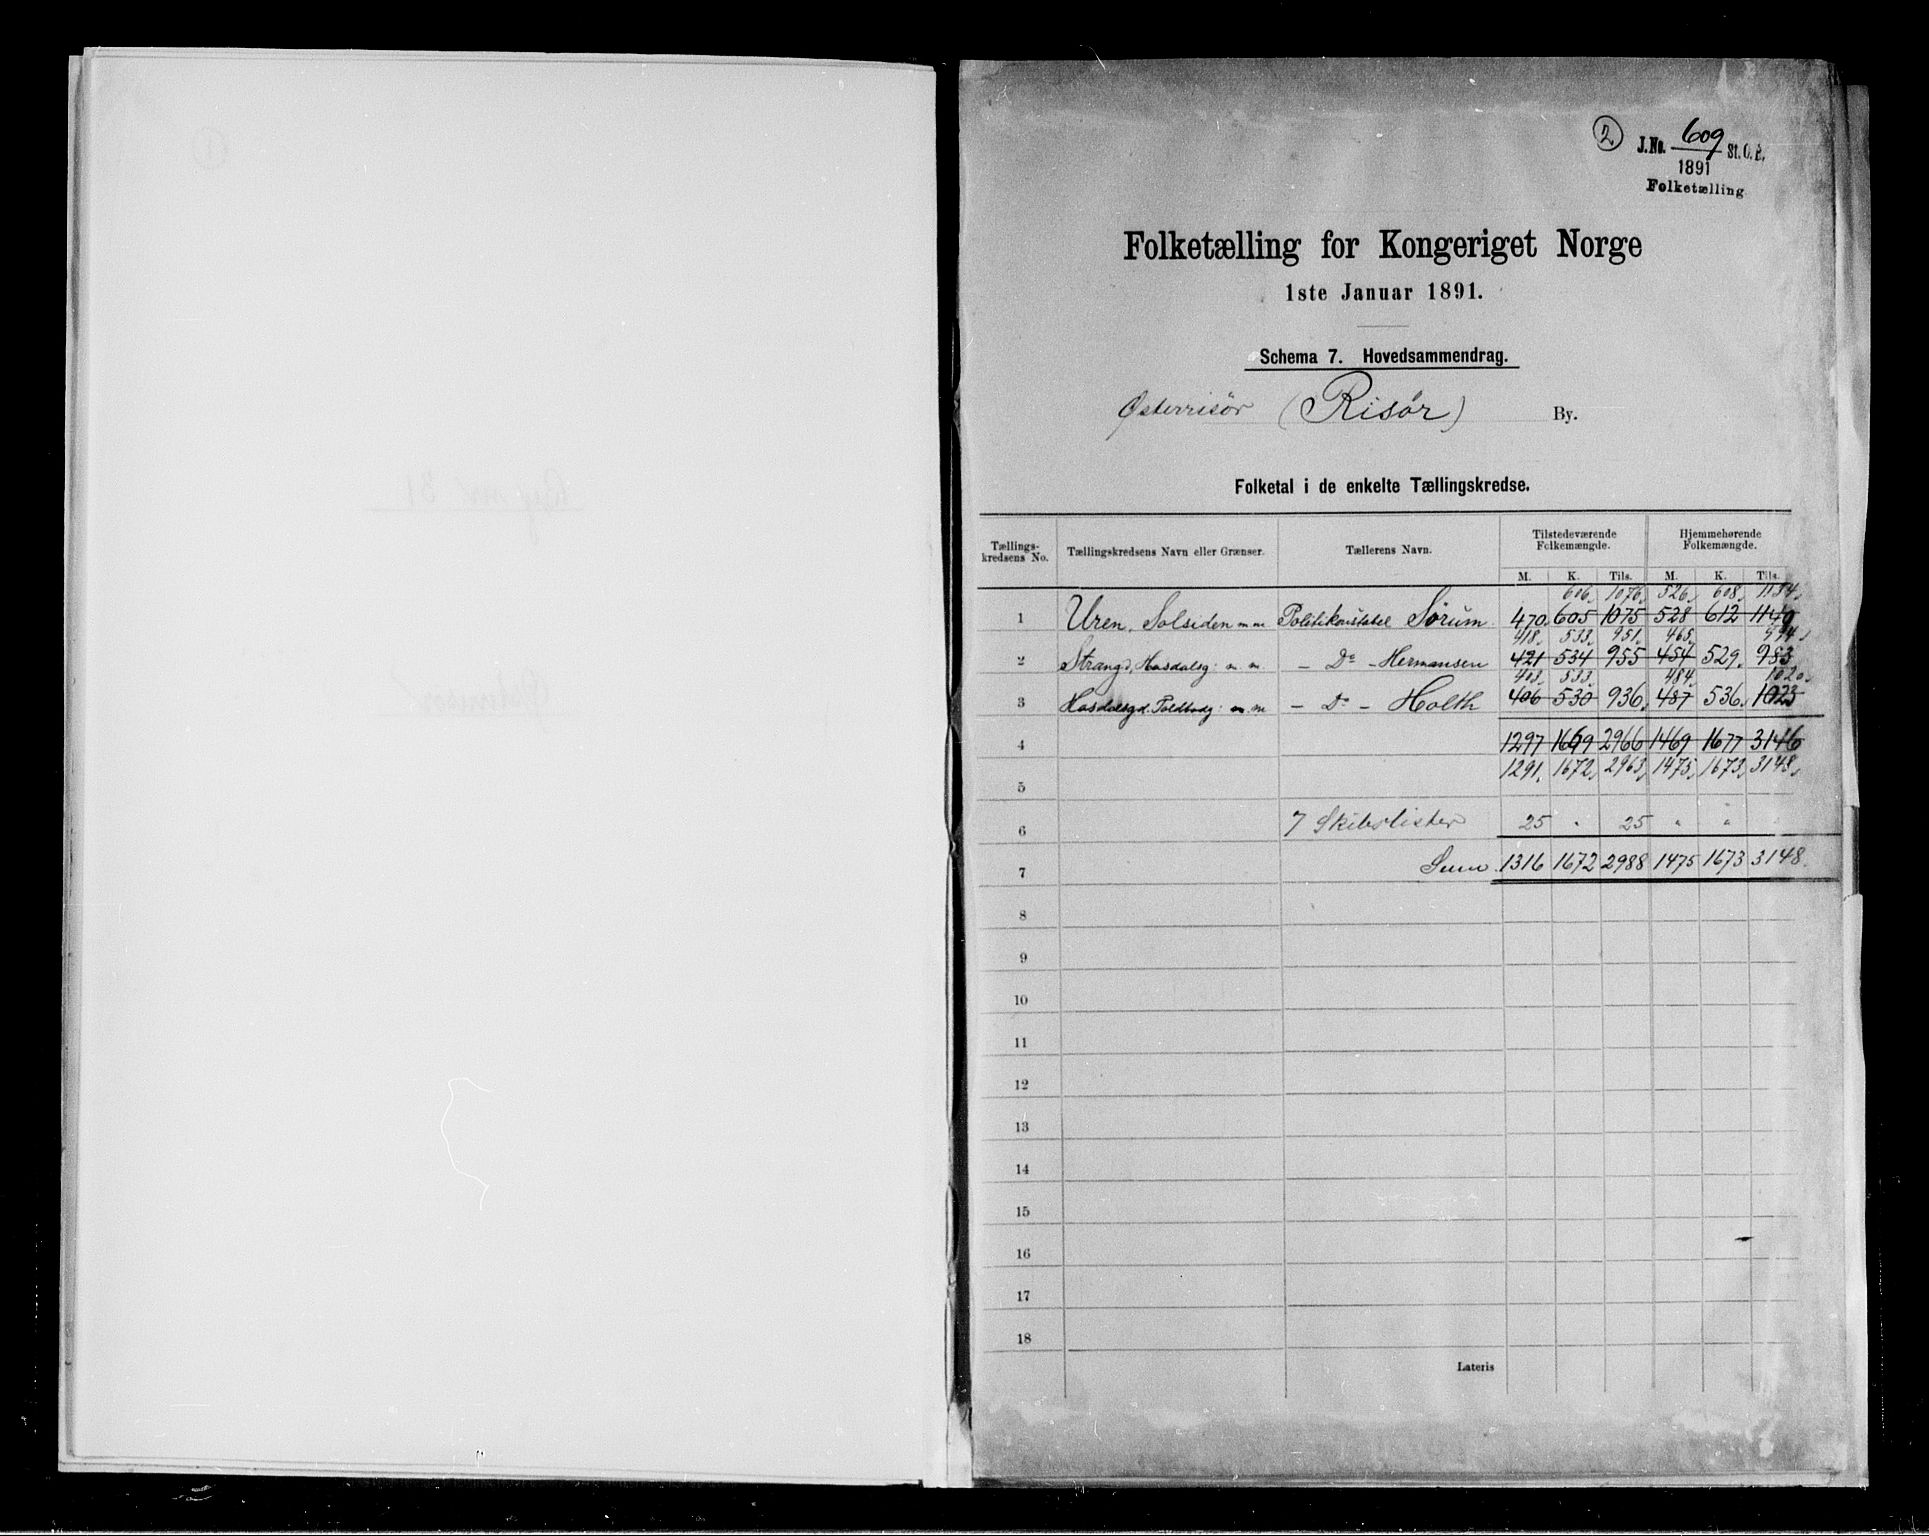 2
J.No. 609 St. C. B.
1891
Folketælling
Folketælling for Kongeriget Norge
1ste Januar 1891.
Schema 7. Hovedsammendrag.
Østerrisör (Risör) By.
Folketal i de enkelte Tællingskredse.
Tællings-kredsens No. Tællingskredsens Navn eller Grænser. Tællerens Navn. Tilstedeværende Folkemængde. Hjemmehørende Folkemængde.
M. K. Tils. M. K. Tils.
606, 1076, 526, 608, 1134,
1 Uren, Solsiden m m Politikonstabel Sörum 470, 605 1075 528 612 1140
418, 533, 951, 465, 994,
2 Strangd, Hasdalsg: m. m. — Do — Hermansen 421 534 955 454 529, 983
403, 533, 484, 1020,
3 Hasdalsgd. Toldbodg: m. m — Do — Holth 406 530 936, 487 536, 1023
4 1297 1669 2966 1469 1677 3146
1291, 1672, 2963, 1475, 1673, 3148,
5
6 7 Skibslister 25 " 25 " "
7 Sum 1316 1672 2988 1475 1673 3148.
8
9
10
11
12
13
14
15
16
17
18
Lateris